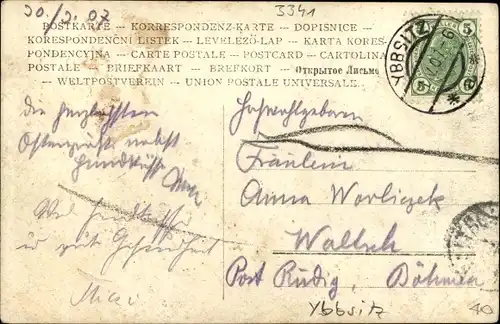 30./3. 07
3341
POSTKARTE — KORRESPONDENZ-KARTE — DOPISNICE —
KORESPONDENČNÍ LISTEK — LEVELEZŐ-LAP — KARTA KORES-
PONDENCYJNA — CARTE POSTALE — POSTCARD — CARTOLINA
POSTALE — BRIEFKAART — BREFKORT — Открытое Письмо
— WELTPOSTVEREIN — UNION POSTALE UNIVERSELLE —
YBBSITZ
5 5
Die herzlichsten
Ostergrüße nebst
Handküsse
Hochwohlgeboren
Fräulein
Anna Worliczek
Waltsch
Post Rudig, Böhmen
Viel Handküsse
u gute Gesundheit
Mizi
Ybbsitz
40